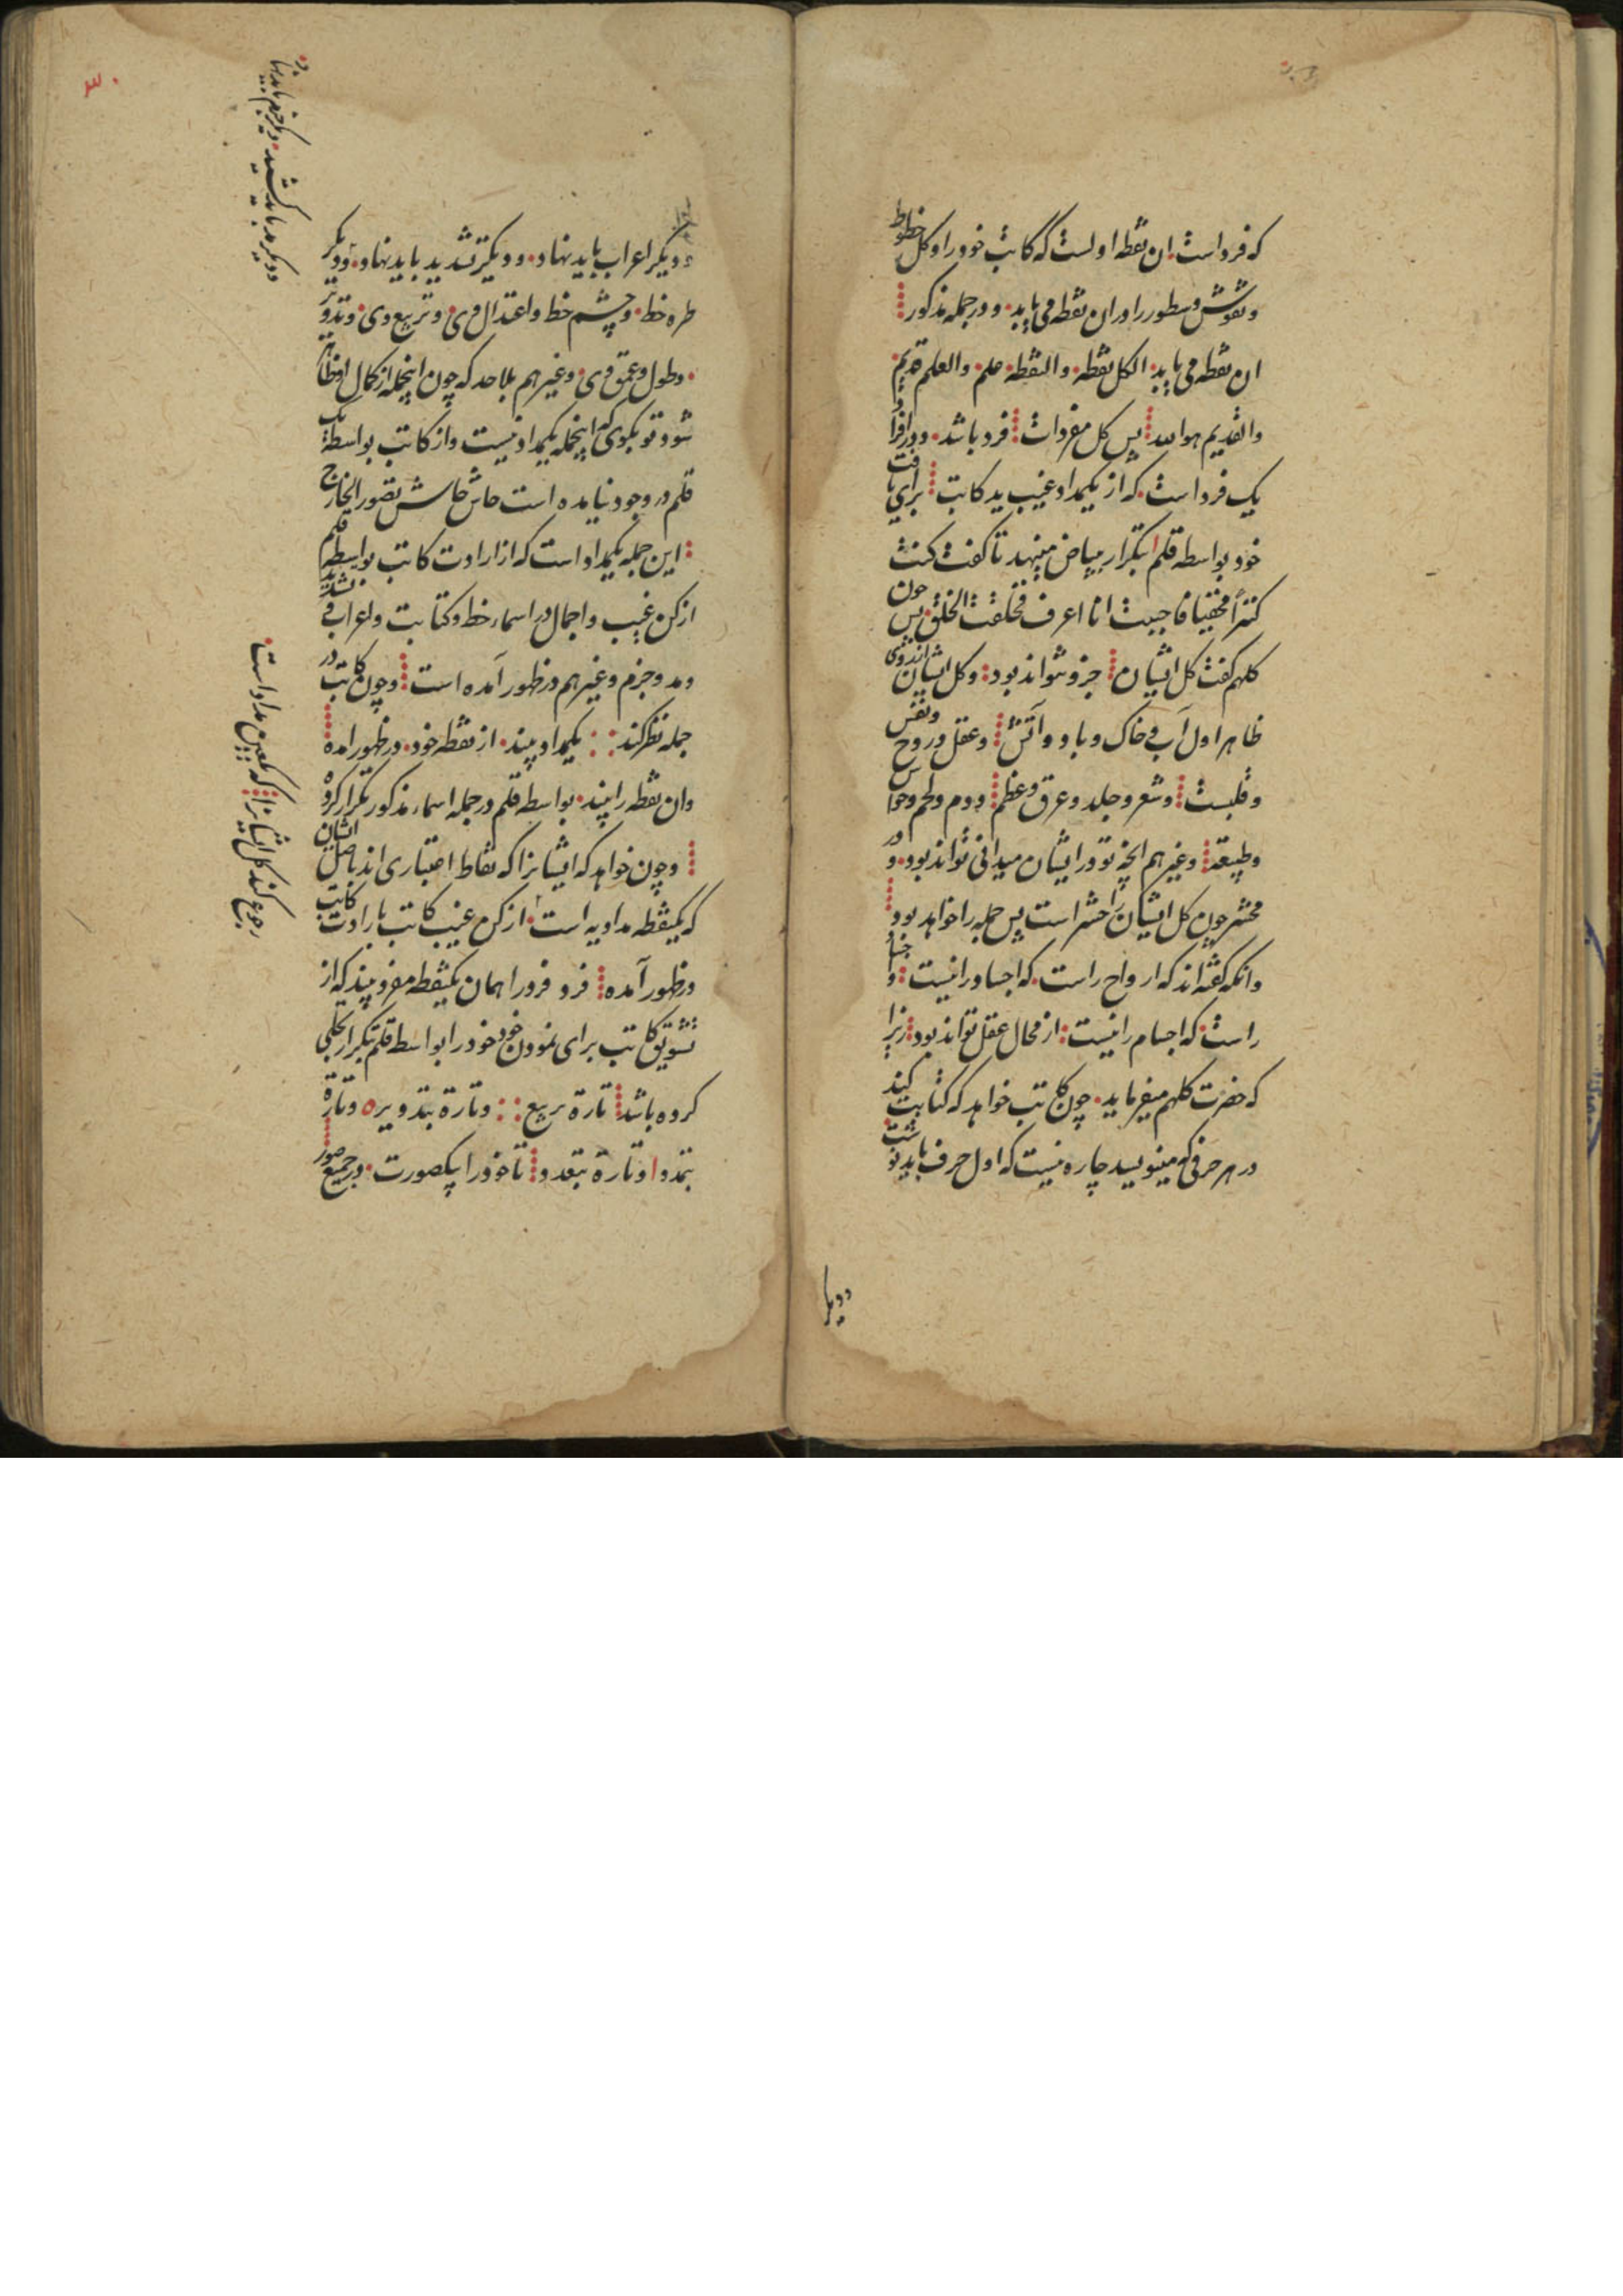 که فرد است ان نقطه اولست که کاتب خود را و کل خطوط
و نقوش و سطور را در ان نقطه می یابد و در جمله مذکور
ان نقطه می یابد الکل نقطه والنقطه علم والعلم قدیم
والقدیم هو الله پس کل مفردات فرد باشد و در افراد
یک فرد است که از یکمداد غیب ید کاتب برای یافت
خود بواسطه قلم بتکرار ببیاض مینهد تا کفت کنت
کنزاً مخفیا فاحببت انا اعرف فخلقت الخلق پس چون
کلهم کفت کل ایشان جز و تواند بود و کل ایشان از روی
ظاهر اول آب و خاک و باد و آتش و عقل و روح و نفس
و قلبست و شعر و جلد و عرق و عظم و دم و لحم و حواس
و طبیعة و غیرهم انچه تو در ایشان میدانی تواند بود و در
محشر چون کل ایشان را حشر است پس جمله را خواهد بود
وانکه کفته اند که ارواح راست که اجساد را نیست و اجساد
راست که اجسام را نیست از محال عقل تواند بود زیرا
که حضرت کلهم میفرماید چون کاتب خواهد که کتابت کند
در هر حرفی که مینویسد چاره نیست که اول حرف باید نوشت
و دیکر
و دیکر اعراب باید نهاد و دیکر تشدید باید نهاد و دیکر
طره خط و چشم خط و اعتدال وی و تربیع وی و تدویر
و طول و عمق وی و غیرهم بلا حد که چون اینجمله از کمال او ظاهر
شود تو بکوی که اینجمله یکمداد نیست و از کاتب بواسطه یک
قلم در وجود نیامده است حاش حاش تصور الخارج
این جمله یکمداد است که از ارادت کاتب بواسطه قلم
از کن غیب و اجمال در اسماء خط و کتابت و اعراب و تشدید
و مد و جزم و غیرهم در ظهور آمده است و چون کاتب در
جمله نظر کند یکمداد بیند از نقطه خود در ظهور امده
وان نقطه را بیند بواسطه قلم در جمله اسماء مذکور تکرار کرده
و چون خواهد که ایشانرا که نقاط اعتباری اند باصل ایشان
که یکنقطه مدادیه است از کن غیب کاتب بارادت کاتب
در ظهور آمده فرد فرد را همان یکنقطه مفرد بیند که از
تشویق کاتب برای نمودن خود خود را بواسطه قلم بتکرار تجلی
کرده باشد تارة بربیع و تارة بتدویر و تارة
بتمدد و تارة بتعدد تا خود را بیکصورت در جمیع صور
و دیکر مد باید کشید و دیکر جزم باید نهاد
رجوع کند کل ایشانرا که بعین مداد است
۳۰